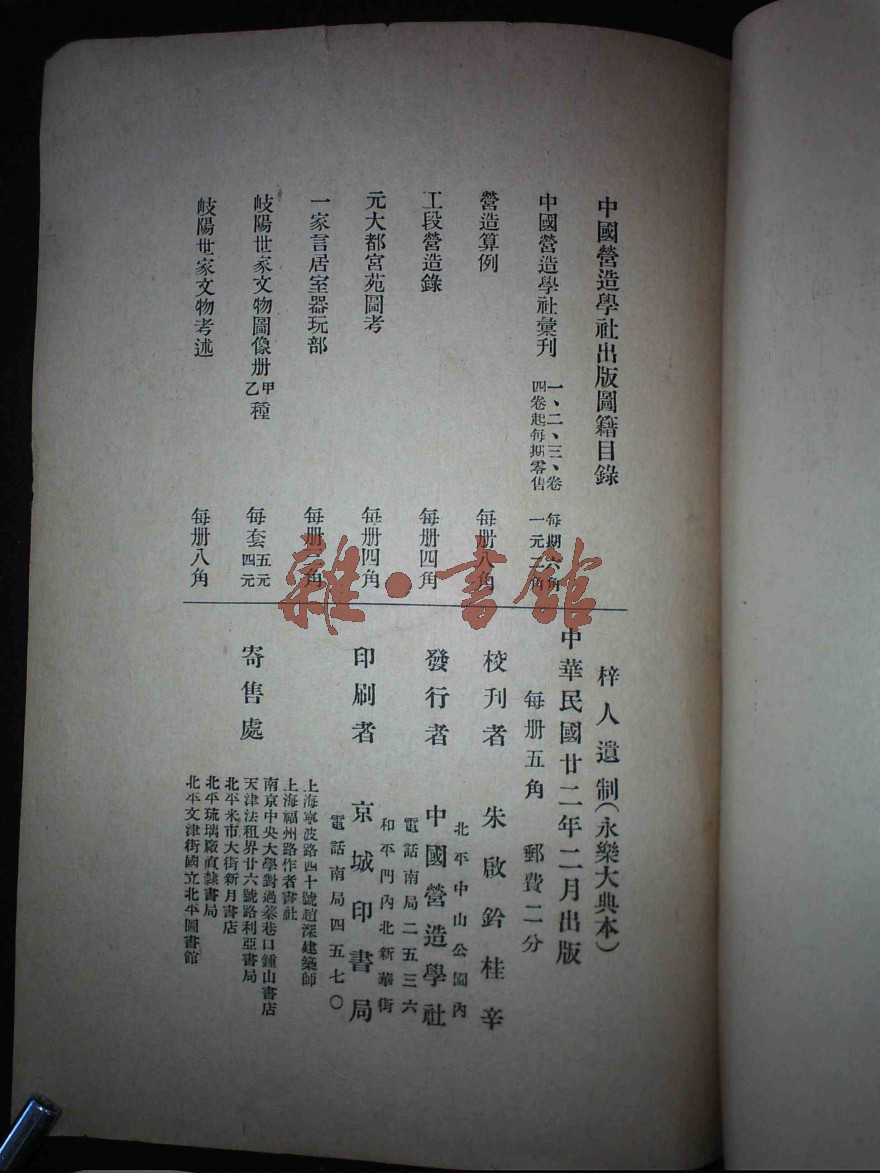 中國營造學社出版圖籍目錄
中國營造學社彙刊 一、二、三、卷 每期六角
四卷起每期零售 一元二角
營造算例 每册八角
工段營造錄 每册四角
元大都宮苑圖考 每册四角
一家言居室器玩部 每册角
岐陽世家文物圖像册 甲乙種 每套 五元 四元
岐陽世家文物考述 每册八角
梓人遺制(永樂大典本)
中華民國廿二年二月出版
每册五角 郵費二分
校刊者 朱啟鈐桂辛
北平中山公園內
發行者 中國營造學社
電話南局二五三六
和平門內北新華街
印刷者 京城印書局
電話南局四五七〇
寄售處
上海寧波路四十號趙深建築師
上海福州路作者書社
南京中央大學對過蓁巷口鍾山書店
天津法租界廿六號路利亞書局
北平米市大街新月書店
北平琉璃廠直隸書局
北平文津街國立北平圖書館
雜·書館